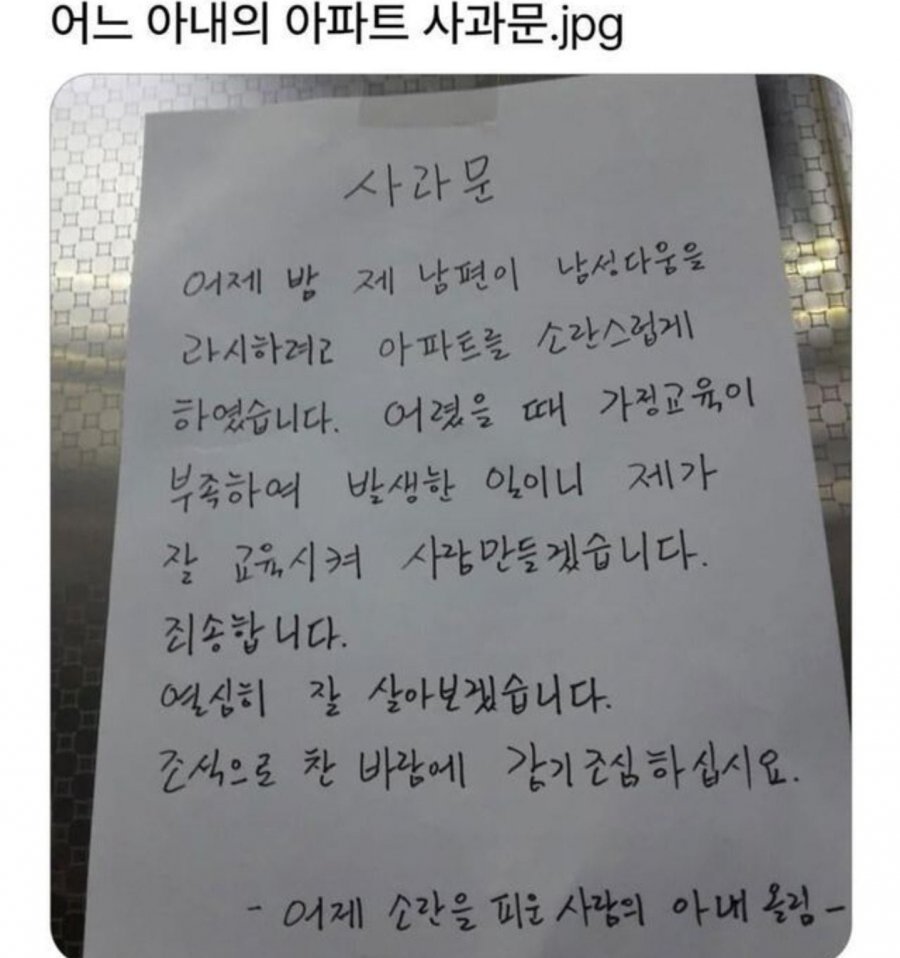 어느 아내의 아파트 사과문.jpg
사과문
어제 밤 제 남편이 남성다움을
과시하려고 아파트를 소란스럽게
하였습니다. 어렸을 때 가정교육이
부족하여 발생한 일이니 제가
잘 교육시켜 사람만들겠습니다.
죄송합니다.
열심히 잘 살아보겠습니다.
조석으로 찬 바람에 감기조심하십시요.
- 어제 소란을 피운 사람의 아내 올림 -